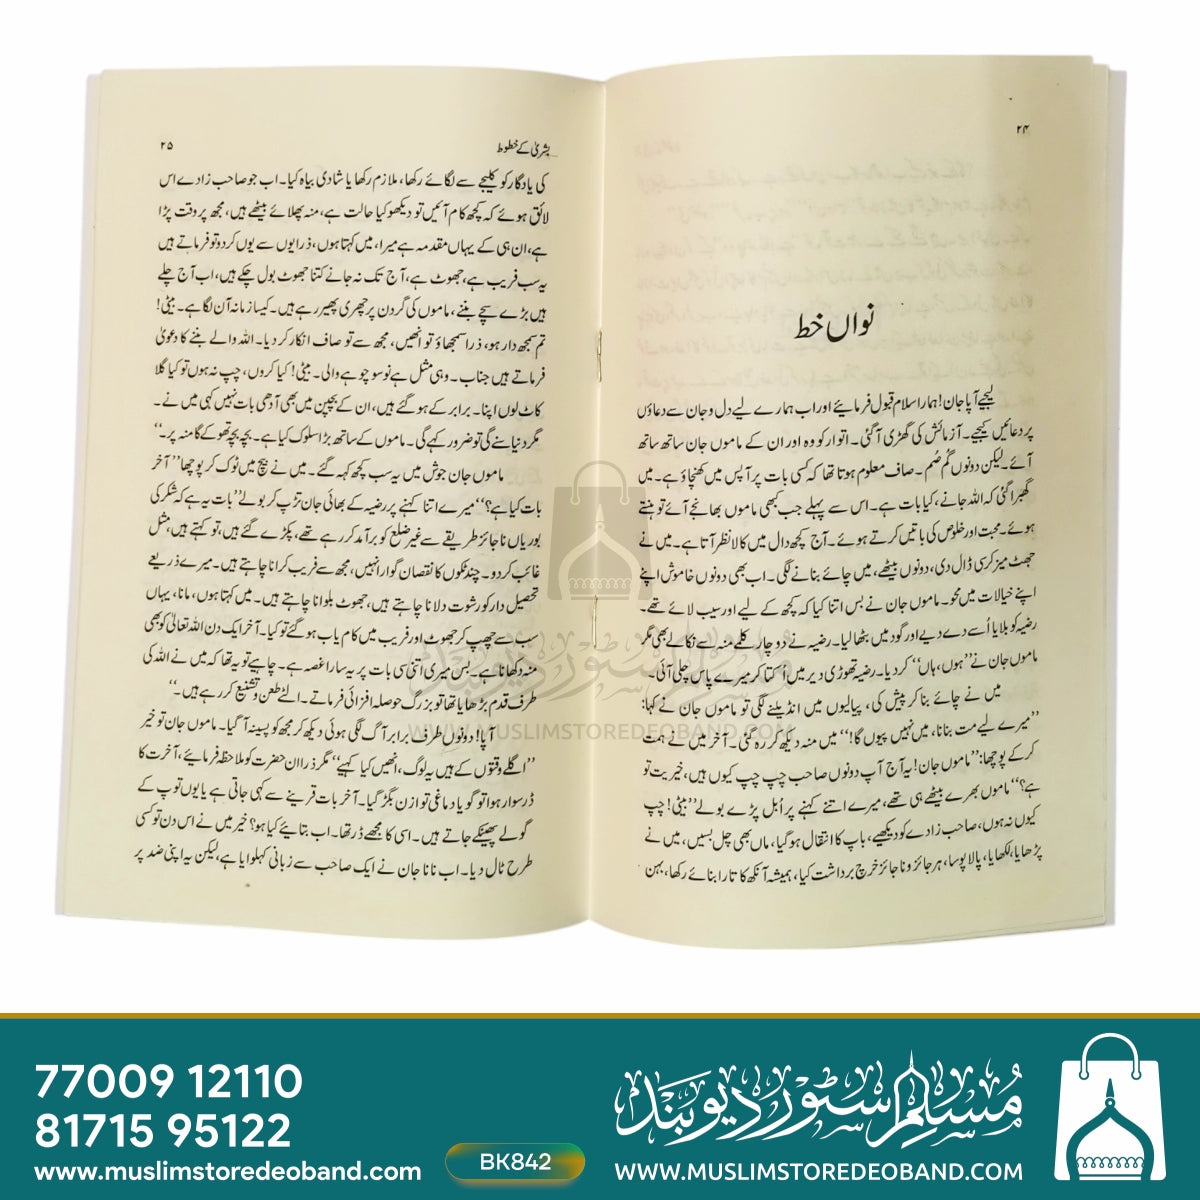 ۲۴
نواں خط
لیجیے آپا جان! ہمارا سلام قبول فرمایئے اور اب ہمارے لیے دل و جان سے دعاؤں
پر دعائیں کیجیے۔ آزمائش کی گھڑی آ گئی۔ اتوار کو وہ اور ان کے ماموں جان ساتھ ساتھ
آئے۔ لیکن دونوں گُم صُم۔ صاف معلوم ہوتا تھا کہ کسی بات پر آپس میں کھنچاؤ ہے۔ میں
گھبرا گئی کہ اللہ جانے، کیا بات ہے۔ اس سے پہلے جب کبھی ماموں بھانجے آئے تو ہنستے
ہوئے۔ محبت اور خلوص کی باتیں کرتے ہوئے۔ آج کچھ دال میں کالا نظر آتا ہے۔ میں نے
جھٹ میز کرسی ڈال دی، دونوں بیٹھے، میں چائے بنانے لگی۔ اب بھی دونوں خاموش اپنے
اپنے خیالات میں محو۔ ماموں جان نے بس اتنا کیا کہ کچھ کے لیے اور سیب لائے تھے۔
رضیہ کو بلایا اُسے دے دیے اور گود میں بٹھا لیا۔ رضیہ نے دو چار کلمے منہ سے نکالے بھی مگر
ماموں جان نے ”ہوں، ہاں“ کر دیا۔ رضیہ تھوڑی دیر میں اُکتا کر میرے پاس چلی آئی۔
میں نے چائے بنا کر پیش کی، پیالیوں میں انڈیلنے لگی تو ماموں جان نے کہا:
”میرے لیے مت بنانا، میں نہیں پیوں گا!“ میں منہ دیکھ کر رہ گئی۔ آخر میں نے ہمت
کر کے پوچھا: ”ماموں جان! یہ آج آپ دونوں صاحب چپ چپ کیوں ہیں، خیریت تو
ہے؟“ ماموں بھرے بیٹھے ہی تھے، میرے اتنے کہنے پر اُبل پڑے بولے ”بیٹی! چپ
کیوں نہ ہوں، صاحب زادے کو دیکھیے، باپ کا انتقال ہو گیا، ماں بھی چل بسیں، میں نے
پڑھایا، لکھایا، پالا پوسا، ہر جائز و ناجائز خرچ برداشت کیا، ہمیشہ آنکھ کا تارا بنائے رکھا، بہن
بشریٰ کے خطوط
۲۵
کی یادگار کو کلیجے سے لگائے رکھا، ملازم رکھا یا شادی بیاہ کیا۔ اب جو صاحب زادے اس
لائق ہوئے کہ کچھ کام آئیں تو دیکھو کیا حالت ہے، منہ پھلائے بیٹھے ہیں، مجھ پر وقت پڑا
ہے، ان ہی کے یہاں مقدمہ ہے میرا، میں کہتا ہوں، ذرا یوں سے یوں کر دو تو فرماتے ہیں
یہ سب فریب ہے، جھوٹ ہے، آج تک نہ جانے کتنا جھوٹ بول چکے ہیں، اب آج چلے
ہیں بڑے سچے بننے، ماموں کی گردن پر چھری پھیر رہے ہیں۔ کیسا زمانہ آن لگا ہے۔ بیٹی!
تم سمجھ دار ہو، ذرا سمجھاؤ تو انھیں، مجھ سے تو صاف انکار کر دیا۔ اللہ والے بننے کا دعویٰ
فرماتے ہیں جناب۔ وہی مثل ہے نو سو چوہے والی۔ بیٹی! کیا کروں، چپ نہ ہوں تو کیا گلا
کاٹ لوں اپنا۔ برابر کے ہو گئے ہیں، ان کے بچپن میں بھی آدھی بات نہیں کہی میں نے۔
مگر دنیا سنے گی تو ضرور کہے گی۔ ماموں کے ساتھ بڑا سلوک کیا ہے۔ بچہ بچہ تھوکے گا منہ پر۔“
ماموں جان جوش میں یہ سب کچھ کہہ گئے۔ میں نے بیچ میں ٹوک کر پوچھا ”آخر
بات کیا ہے؟“ میرے اتنا کہنے پر رضیہ کے بھائی جان تڑپ کر بولے ”بات یہ ہے کہ شکر کی
بوریاں ناجائز طریقے سے غیر ضلع کو برآمد کر رہے تھے، پکڑے گئے ہیں، تو کہتے ہیں، مثل
غائب کر دو۔ چند ٹکوں کا نقصان گوارا نہیں، مجھ سے فریب کرانا چاہتے ہیں۔ میرے ذریعے
تحصیل دار کو رشوت دلانا چاہتے ہیں، جھوٹ بلوانا چاہتے ہیں۔ میں کہتا ہوں، مانا، یہاں
سب سے چھپ کر جھوٹ اور فریب میں کام یاب ہو گئے تو کیا۔ آخر ایک دن اللہ تعالیٰ کو بھی
منہ دکھانا ہے۔ بس میری اتنی سی بات پر یہ سارا غصہ ہے۔ چاہیے تو یہ تھا کہ میں نے اللہ کی
طرف قدم بڑھایا تھا تو بزرگ حوصلہ افزائی فرماتے۔ الٹے طعن و تشنیع کر رہے ہیں۔“
آپا! دونوں طرف برابر آگ لگی ہوئی دیکھ کر مجھ کو پسینہ آ گیا۔ ماموں جان تو خیر
”اگلے وقتوں کے ہیں یہ لوگ، انھیں کیا کہیے“ مگر ذرا ان حضرت کو ملاحظہ فرمایئے، آخرت کا
ڈر سوار ہوا تو گویا دماغی توازن بگڑ گیا۔ آخر بات قرینے سے کہی جاتی ہے یا یوں توپ کے
گولے پھینکے جاتے ہیں۔ اسی کا مجھے ڈر تھا۔ اب بتایئے کیا ہو؟ خیر میں نے اس دن تو کسی
طرح ٹال دیا۔ اب نانا جان نے ایک صاحب سے زبانی کہلوایا ہے، لیکن یہ اپنی ضد پر
مسلم سٹور دیوبند
WWW.MUSLIMSTOREDEOBAND.COM
77009 12110
81715 95122
www.muslimstoredeoband.com
BK842
مسلم سٹور دیوبند
WWW.MUSLIMSTOREDEOBAND.COM